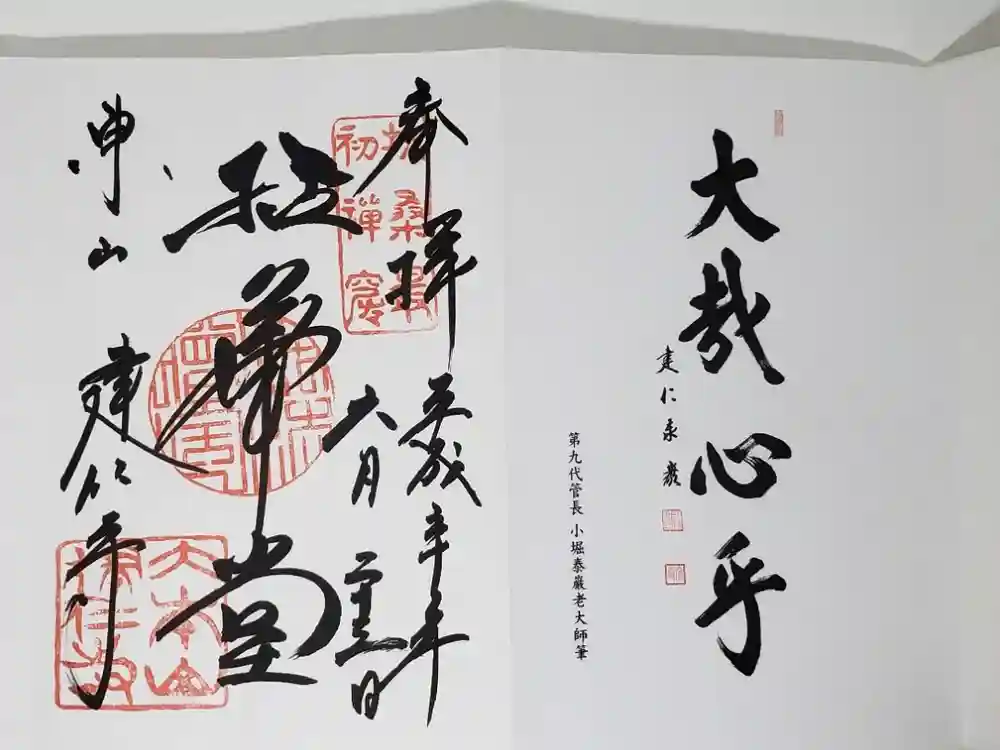 大哉心乎
建仁泰巖
第九代管長 小堀泰巖老大師筆
奉拝 平成
六月
扶桑最
初禪窟
拈華堂
東山 建仁寺
大本山
建仁寺